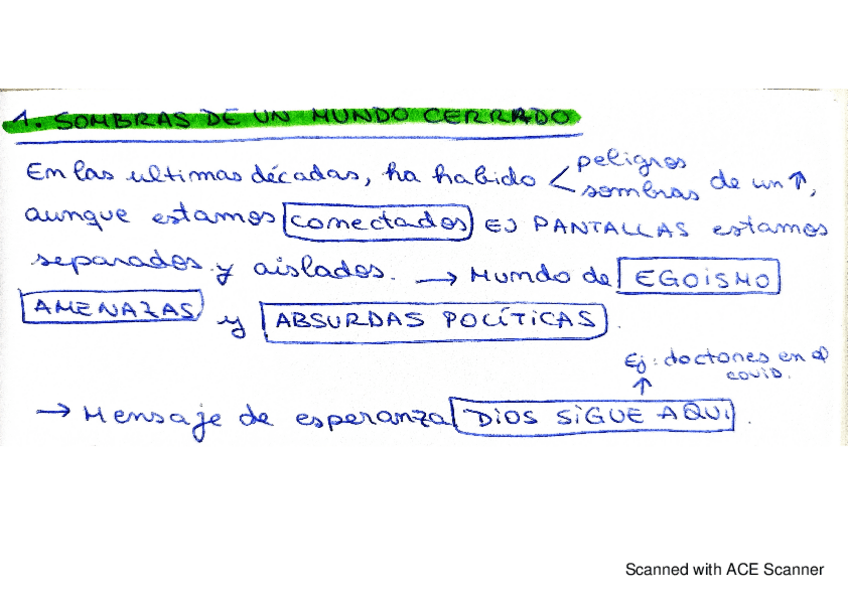 1. SOMBRAS DE UN MUNDO CERRADO
En las ultimas décadas, ha habido < peligros
sombras de un ↑,
aunque estamos conectados EJ PANTALLAS estamos
separados y aislados. → Mundo de EGOISMO
AMENAZAS y ABSURDAS POLÍTICAS.
Ej: doctores en el
covid.
↑
→ Mensaje de esperanza DIOS SIGUE AQUI.
Scanned with ACE Scanner